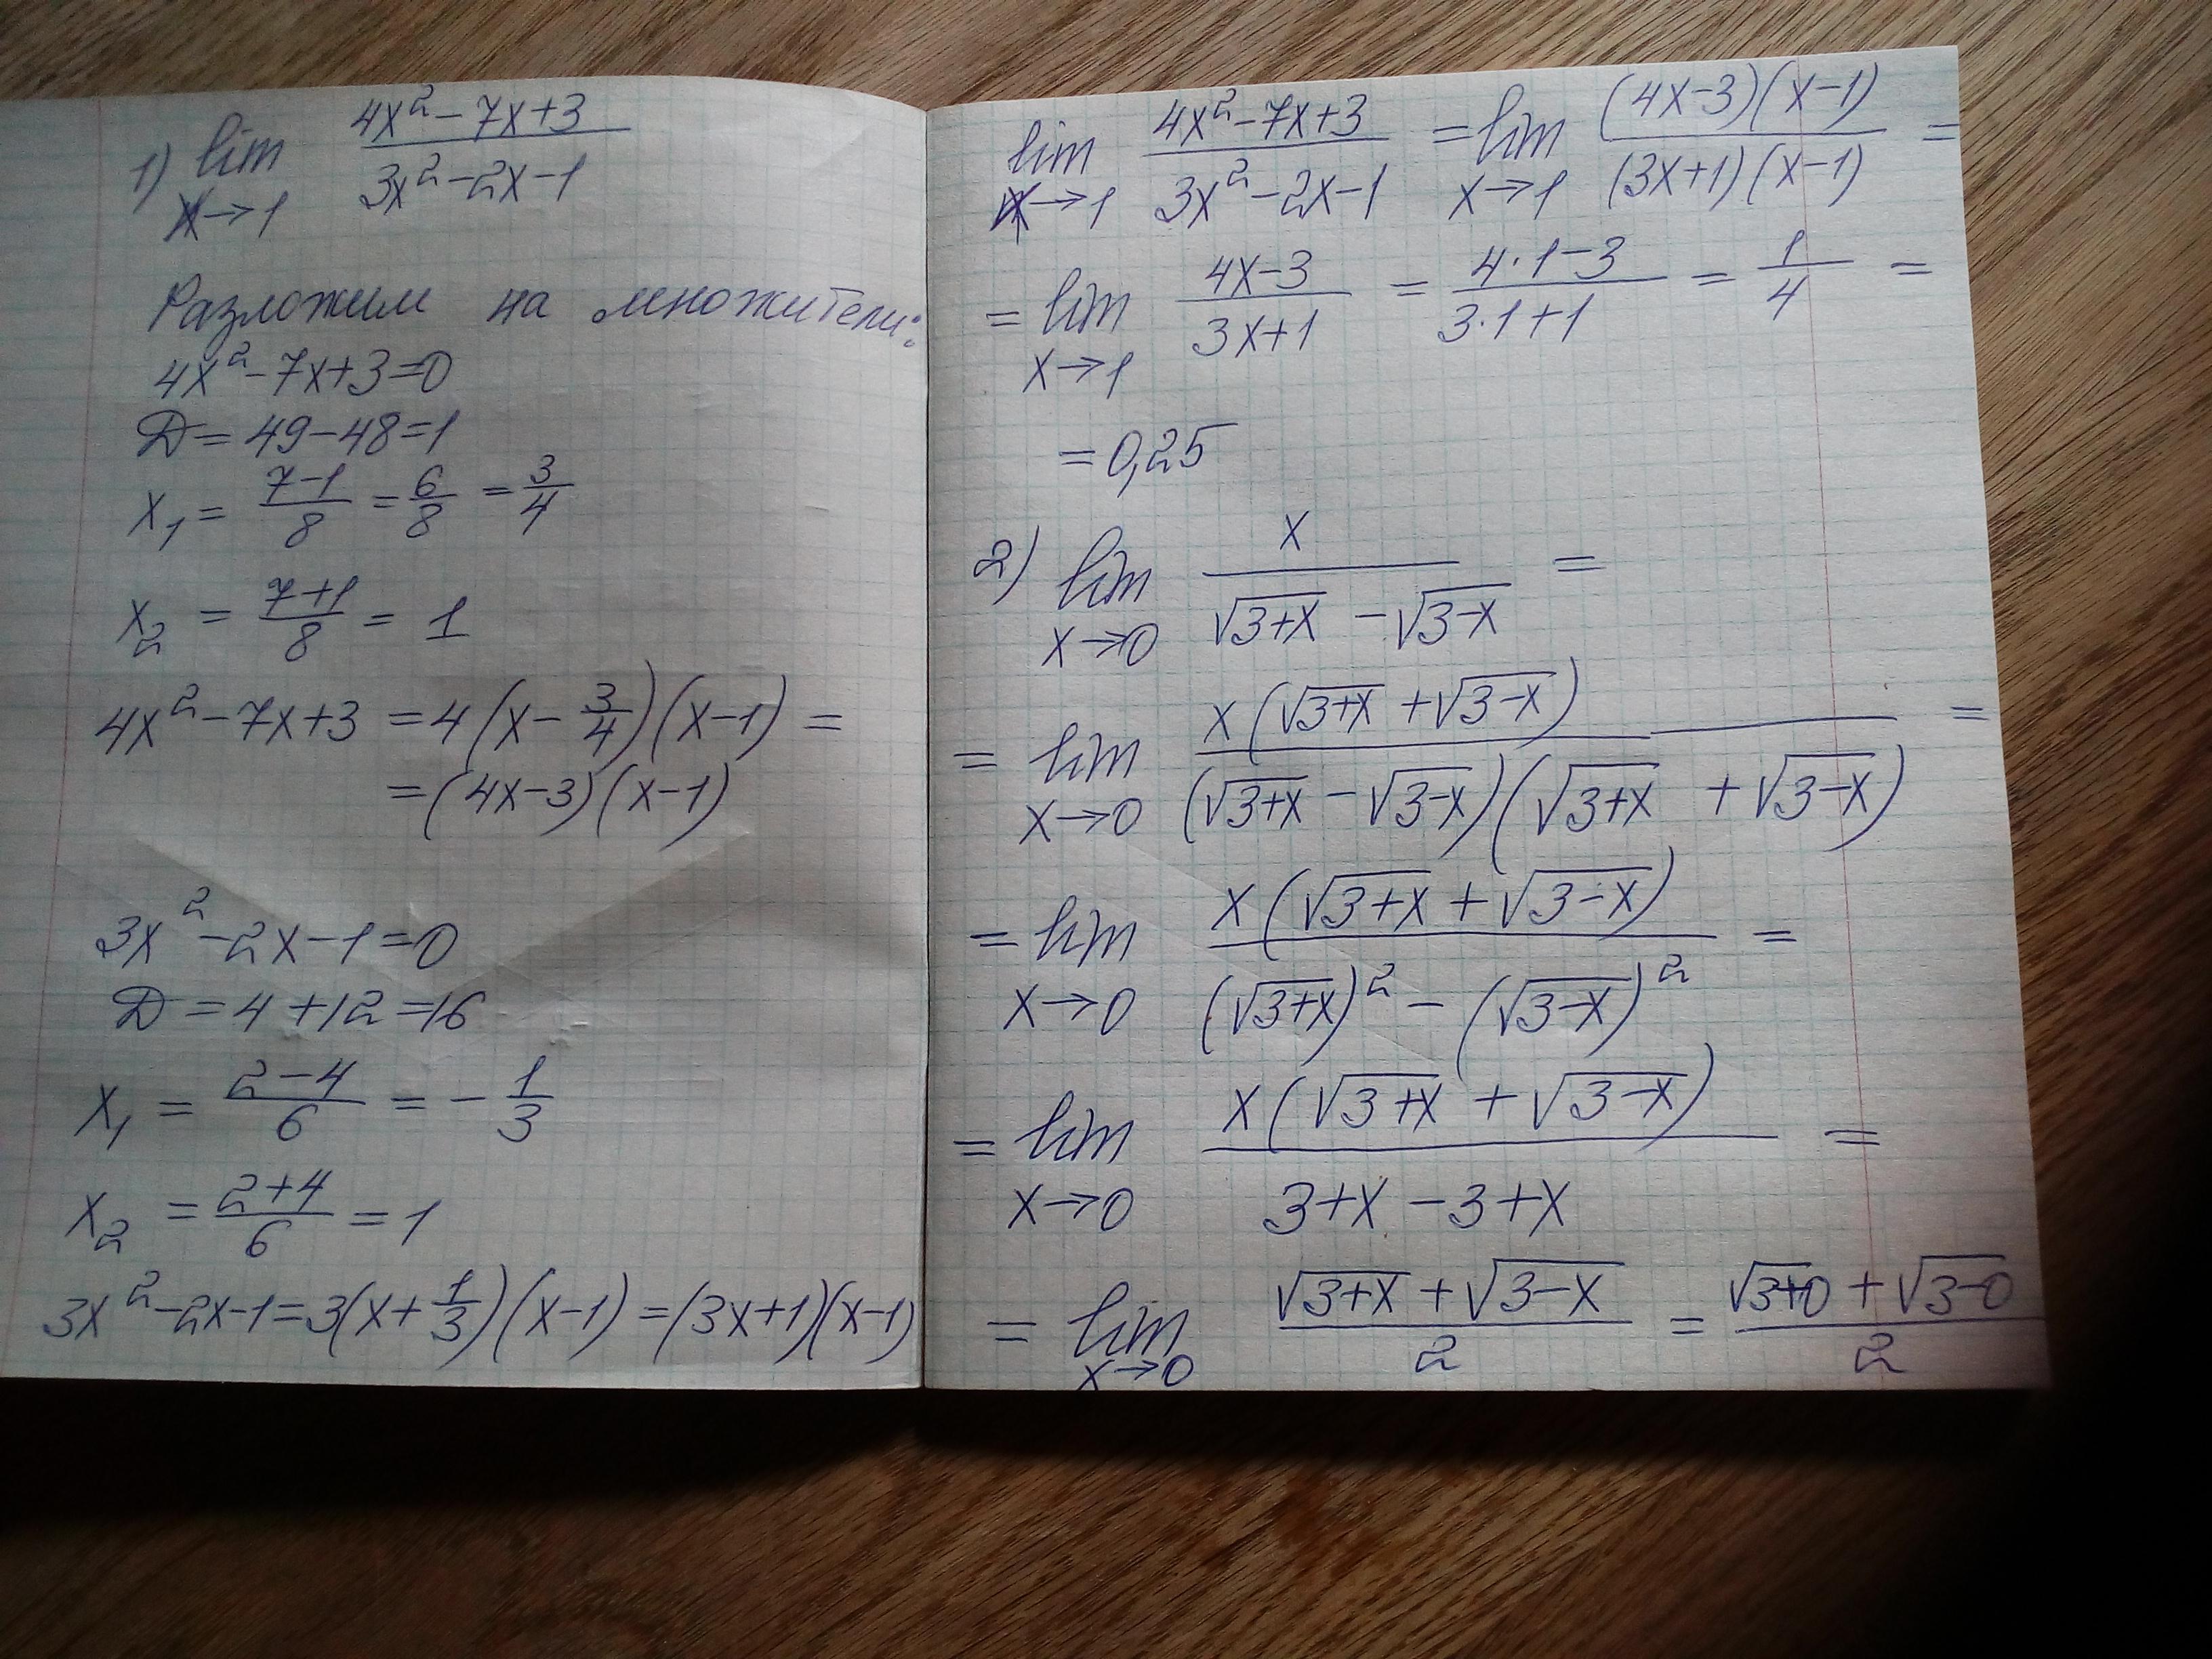 1) lim x→1 (4x² − 7x + 3)/(3x² − 2x − 1)
Разложим на множители:
4x² − 7x + 3 = 0
D = 49 − 48 = 1
x₁ = (7 − 1)/8 = 6/8 = 3/4
x₂ = (7 + 1)/8 = 1
4x² − 7x + 3 = 4(x − 3/4)(x − 1) =
= (4x − 3)(x − 1)
3x² − 2x − 1 = 0
D = 4 + 12 = 16
x₁ = (2 − 4)/6 = − 1/3
x₂ = (2 + 4)/6 = 1
3x² − 2x − 1 = 3(x + 1/3)(x − 1) = (3x + 1)(x − 1)
lim x→1 (4x² − 7x + 3)/(3x² − 2x − 1) = lim x→1 ((4x − 3)(x − 1))/((3x + 1)(x − 1)) =
= lim x→1 (4x − 3)/(3x + 1) = (4·1 − 3)/(3·1 + 1) = 1/4 =
= 0,25
2) lim x→0 x/(√(3+x) − √(3−x)) =
= lim x→0 (x(√(3+x) + √(3−x)))/((√(3+x) − √(3−x))(√(3+x) + √(3−x))) =
= lim x→0 (x(√(3+x) + √(3−x)))/((√(3+x))² − (√(3−x))²) =
= lim x→0 (x(√(3+x) + √(3−x)))/(3 + x − 3 + x) =
= lim x→0 (√(3+x) + √(3−x))/2 = (√(3+0) + √(3−0))/2